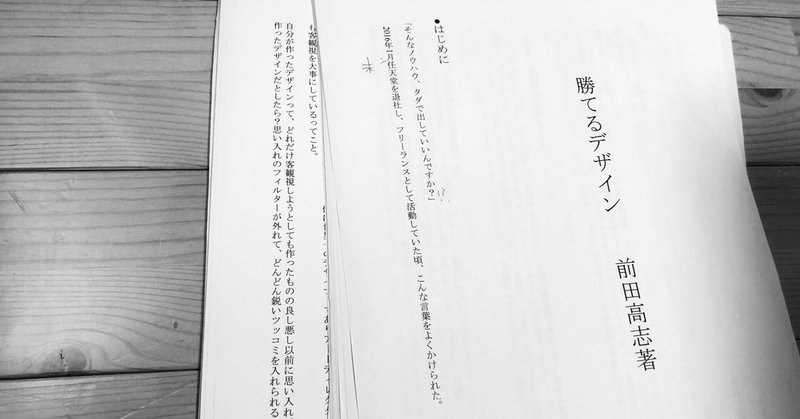 勝てるデザイン　前田高志著
●はじめに
「そんなノウハウ、タダで出していいんですか?」 !?
2016年1月任天堂を退社し、フリーランスとして活動していた頃、こんな言葉をよくかけられた。
末
も客観視を大事にしているってこと。
自分が作ったデザインって、どれだけ客観視しようとしても作ったものの良し悪し以前に思い入れ
作ったデザインだとしたら?思い入れのフィルターが外れて、どんどん鋭いツッコミを入れられる